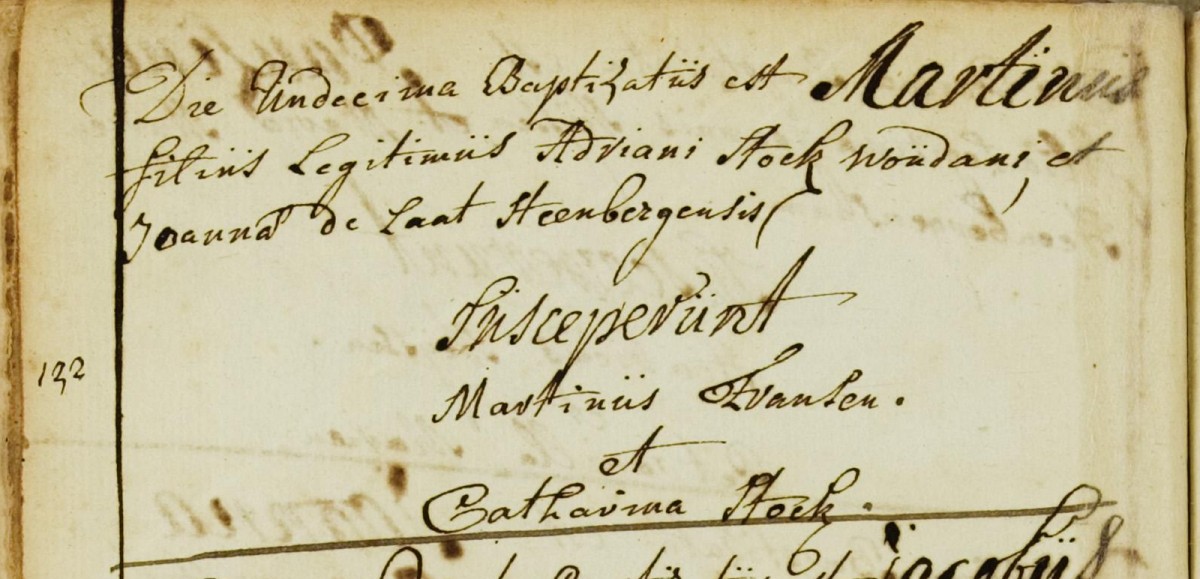 Die Undecima Baptizatus est Martinus
filius Legitimus Adriani Stock woudani, et
Joanna de Laat Steenbergensis
Susceperunt
132
Martinus Fransen.
et
Catharina Stock.
Jacobus